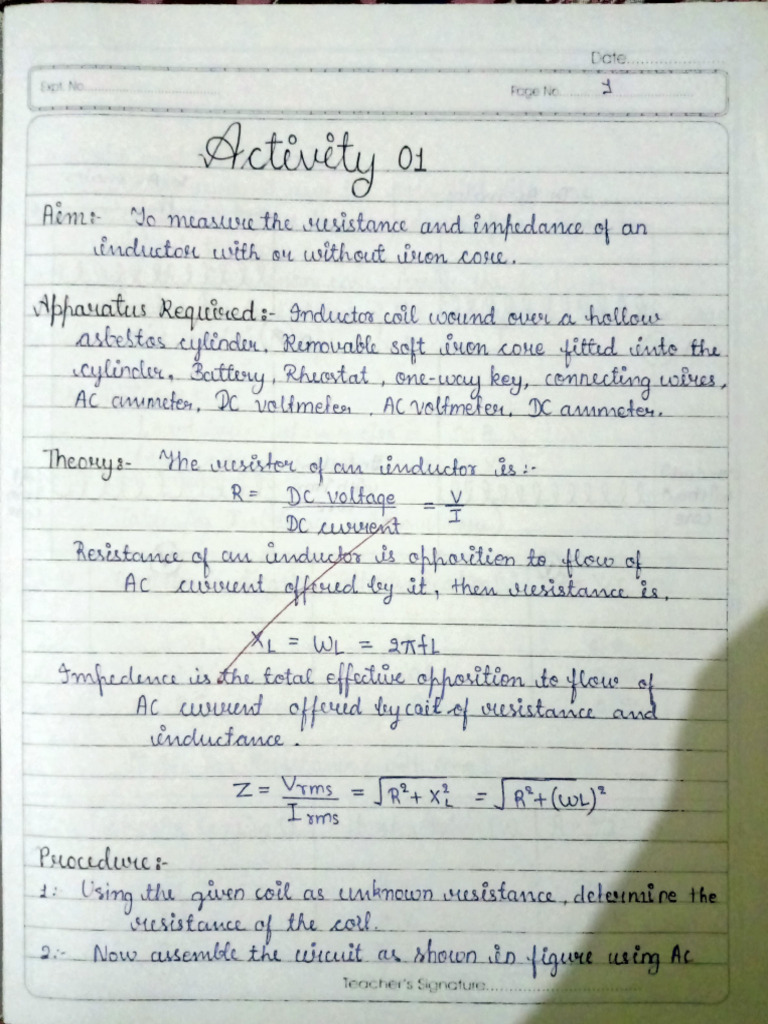 Date
Expt. No.
Page No. 1
Activity 01
Aim:- To measure the resistance and impedance of an
inductor with or without iron core.
Apparatus Required:- Inductor coil wound over a hollow
asbestos cylinder, Removable soft iron core fitted into the
cylinder, Battery, Rheostat, one-way key, connecting wires,
AC ammeter, DC voltmeter, AC voltmeter, DC ammeter.
Theory:- The resistor of an inductor is:-
R = DC voltage / DC current = V / I
Resistance of an inductor is opposition to flow of
AC current offered by it, then resistance is,
XL = WL = 2πfL
Impedence is the total effective opposition to flow of
AC current offered by coil of resistance and
inductance.
Z = Vrms / Irms = √R²+XL² = √R²+(WL)²
Procedure:-
1:- Using the given coil as unknown resistance, determine the
resistance of the coil.
2:- Now assemble the circuit as shown in figure using AC
Teacher's Signature